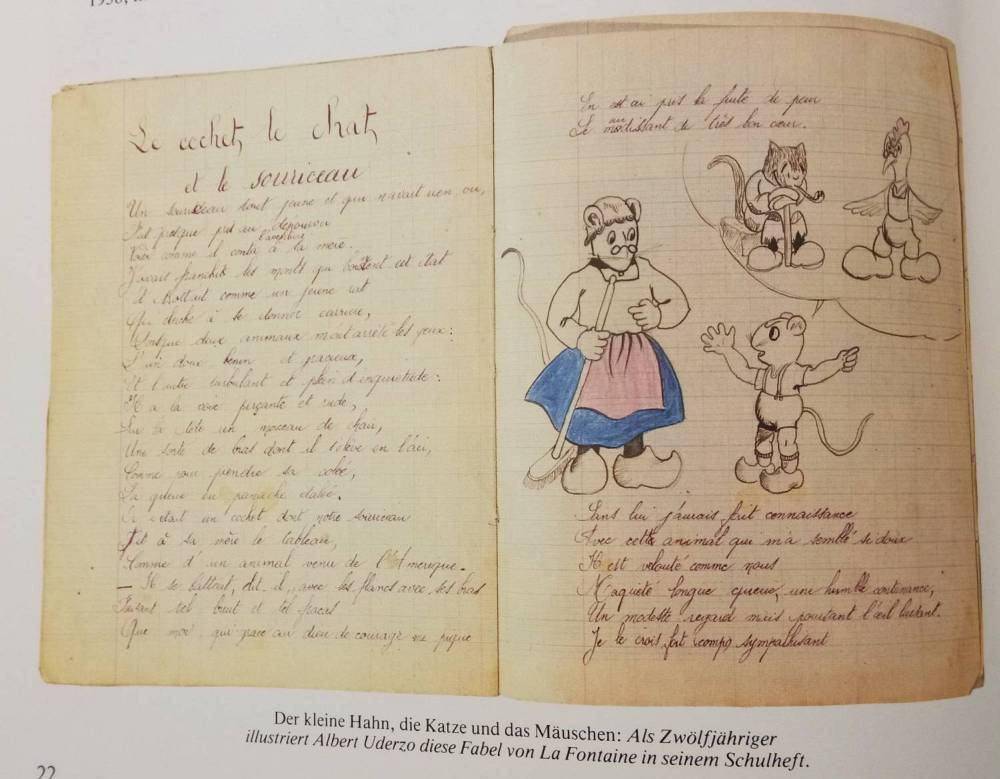 1938,
Le cochet, le chat,
et le souriceau
Un souriceau tout jeune et qui n'avait rien vu,
Fut presque pris au dépourvu
Voici comme il conta l'aventure à sa mère.
J'avais franchis les monts qui bordent cet état
Et trottait comme un jeune rat
Qui cherche à se donner carrière,
Lorsque deux animaux m'ont arrêté les yeux:
L'un doux, benin et gracieux,
Et l'autre turbulant et plein d'inquiétude.
Il a la voix perçante et rude,
Sur la tête un morceau de chair,
Une sorte de bras dont il s'élève en l'air,
Comme pour prendre sa volée,
La queue en panache étalée.
Or c'était un cochet dont notre souriceau
Fit à sa mère le tableau,
Comme d'un animal venu de l'Amérique.
— Il se battait, dit-il, avec les flancs avec ses bras
Faisant tel bruit et tel fracas
Que moi, qui grace au dieu de courage me pique
En est ai pris la fuite de peur
Le maudissant de très bon cœur.
Sans lui j'aurais fait connaissance
Avec cette animal qui m'a semblé si doux
Il est velouté comme nous
longue queue, une humble contenance,
Un modeste regard mais pourtant l'œil luisant.
Je le crois fort sympathisant
Der kleine Hahn, die Katze und das Mäuschen: Als Zwölfjähriger
illustriert Albert Uderzo diese Fabel von La Fontaine in seinem Schulheft.
22